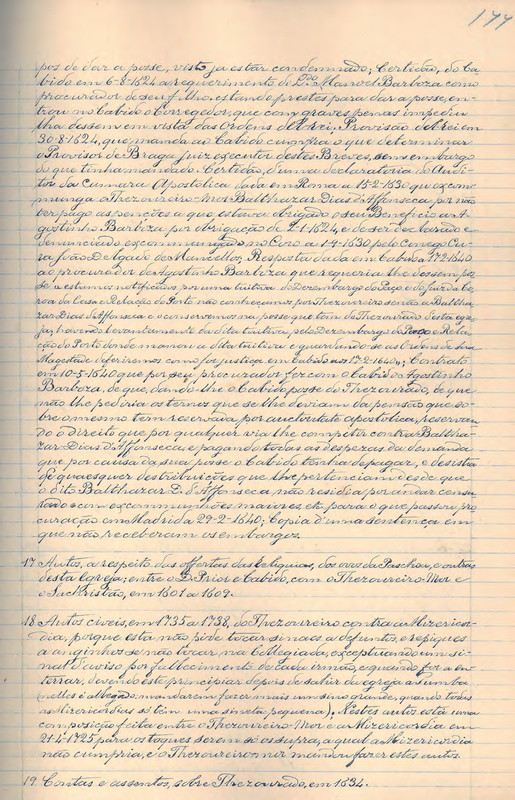 177
pos de dar a posse, visto ja estar condemnado; Certidão, do Ca-
bido em 6-8-1624 a requerimento de L.do Manoel Barboza como
procurador de seu filho, estando prestes para dar a posse, en-
trou no Cabido o Corregedor, que com graves penas impediu
lha dessem em vista das Ordens d'El rei, Provisão del Rei em
30-8-1624, que manda ao Cabido cumpra o que determinar
o Provisor de Braga Juiz executor destes Breves, sem embargo
do que tinha mandado. Certidão, d'uma declaratoria do Audi-
tor da Camara Apostolica dada em Roma a 15-2-1630 que excom-
munga o Thezoureiro Mor Balthazar Dias d'Affonseca, por não
ter pago as penções a que estava obrigado o seu Beneficio a A-
gostinho Barboza por obrigação de 2-1-1624, e de ser declarado e
denunciado excommungado no Coro a 1-4-1630 pelo Conego Cu-
ra João Delgado de Resposta dada em Cabido a 17-2-1640
ao procurador de Agostinho Barboza que requeria lhe dessem pos-
se e estamos notificados, por uma tuitiva do Dezembargo do Paço e do Juiz da Co-
roa da Casa e Relação do Porto não conheçamos por Thezoureiro senão a Baltha-
zar Dias d'Affonseca e o conservemos na posse que tem do Thezourado desta egre-
ja, havendo levantamento da dita tuitiva, pelo Dezembargo do Paço e Rela-
ção do Porto donde manou a dita tuitiva e guardando-se as Ordens de Sua
Magestade deferiremos como for justiça em Cabido aos 17-2-1640; Contrato
em 10-5-1640 que por seu procurador fez com o Cabido o Agostinho
Barboza, de que, dando-lhe o Cabido posse do Thezourado, de que
não lhe pederia os termos que se lhe deviam da pensão que so-
bre o mesmo tem reservada por auctoritate apostolica, reservan-
do o Direito que por qualquer via lhe competir contra Baltha-
zar Dias d'Affonseca, e pagando todas as despezas da demanda
que por causa da sua posse o Cabido tenha de pagar, e desista
de quaesquer destribuições que lhe pertenciam desde que
o dito Balthazar D. d'Affonseca não residia por andar censu-
rado com excommunhões maiores, etc. para o que passou pro-
curação em Madrid a 29-2-1640; Copia d'uma sentença em
que não receberam os embargos.
17 Autos, a respeito das offertas das Reliquias, dos ovos da Paschoa, e outras
desta Egreja; entre o D. Prior e Cabido, com o Thezoureiro-Mor e
o Sachristão, em 1601 a 1609.
18 Autos civeis, em 1735 a 1738, do Thezoureiro contra a Mizericor-
dia, porque esta não pode tocar sinaes a defuntos, e repiques
a anginhos se não tocar na Collegiada, exceptuando um si-
nal d'aviso por fallecimento de cada irmão, e quando for a en-
terrar, devendo este principiar depois de sahir da egreja a tumba
(nelles é allegado mandarem fazer mais um sino grande, quando todas
as Mizericordias só têm uma sineta pequena); Nestes autos está uma
composição feita entre o Thezoureiro Mor e a Mizericordia em
21-4-1725 para os toques serem só os supra, a qual a Mizericordia
não cumpria, e o Thezoureiro-mor mandou fazer estes autos.
19. Contas e assentos, sobre Thezourado, em 1834.